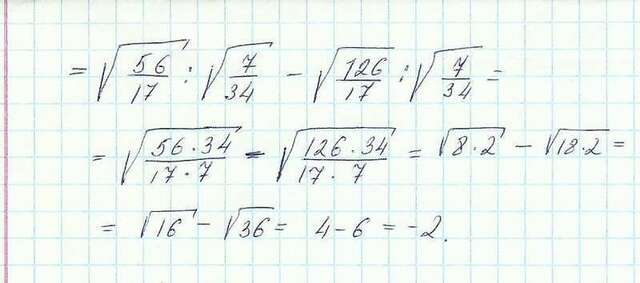 = √(56/17) : √(7/34) - √(126/17) : √(7/34) =
= √((56·34)/(17·7)) - √((126·34)/(17·7)) = √(8·2) - √(18·2) =
= √16 - √36 = 4-6 = -2.